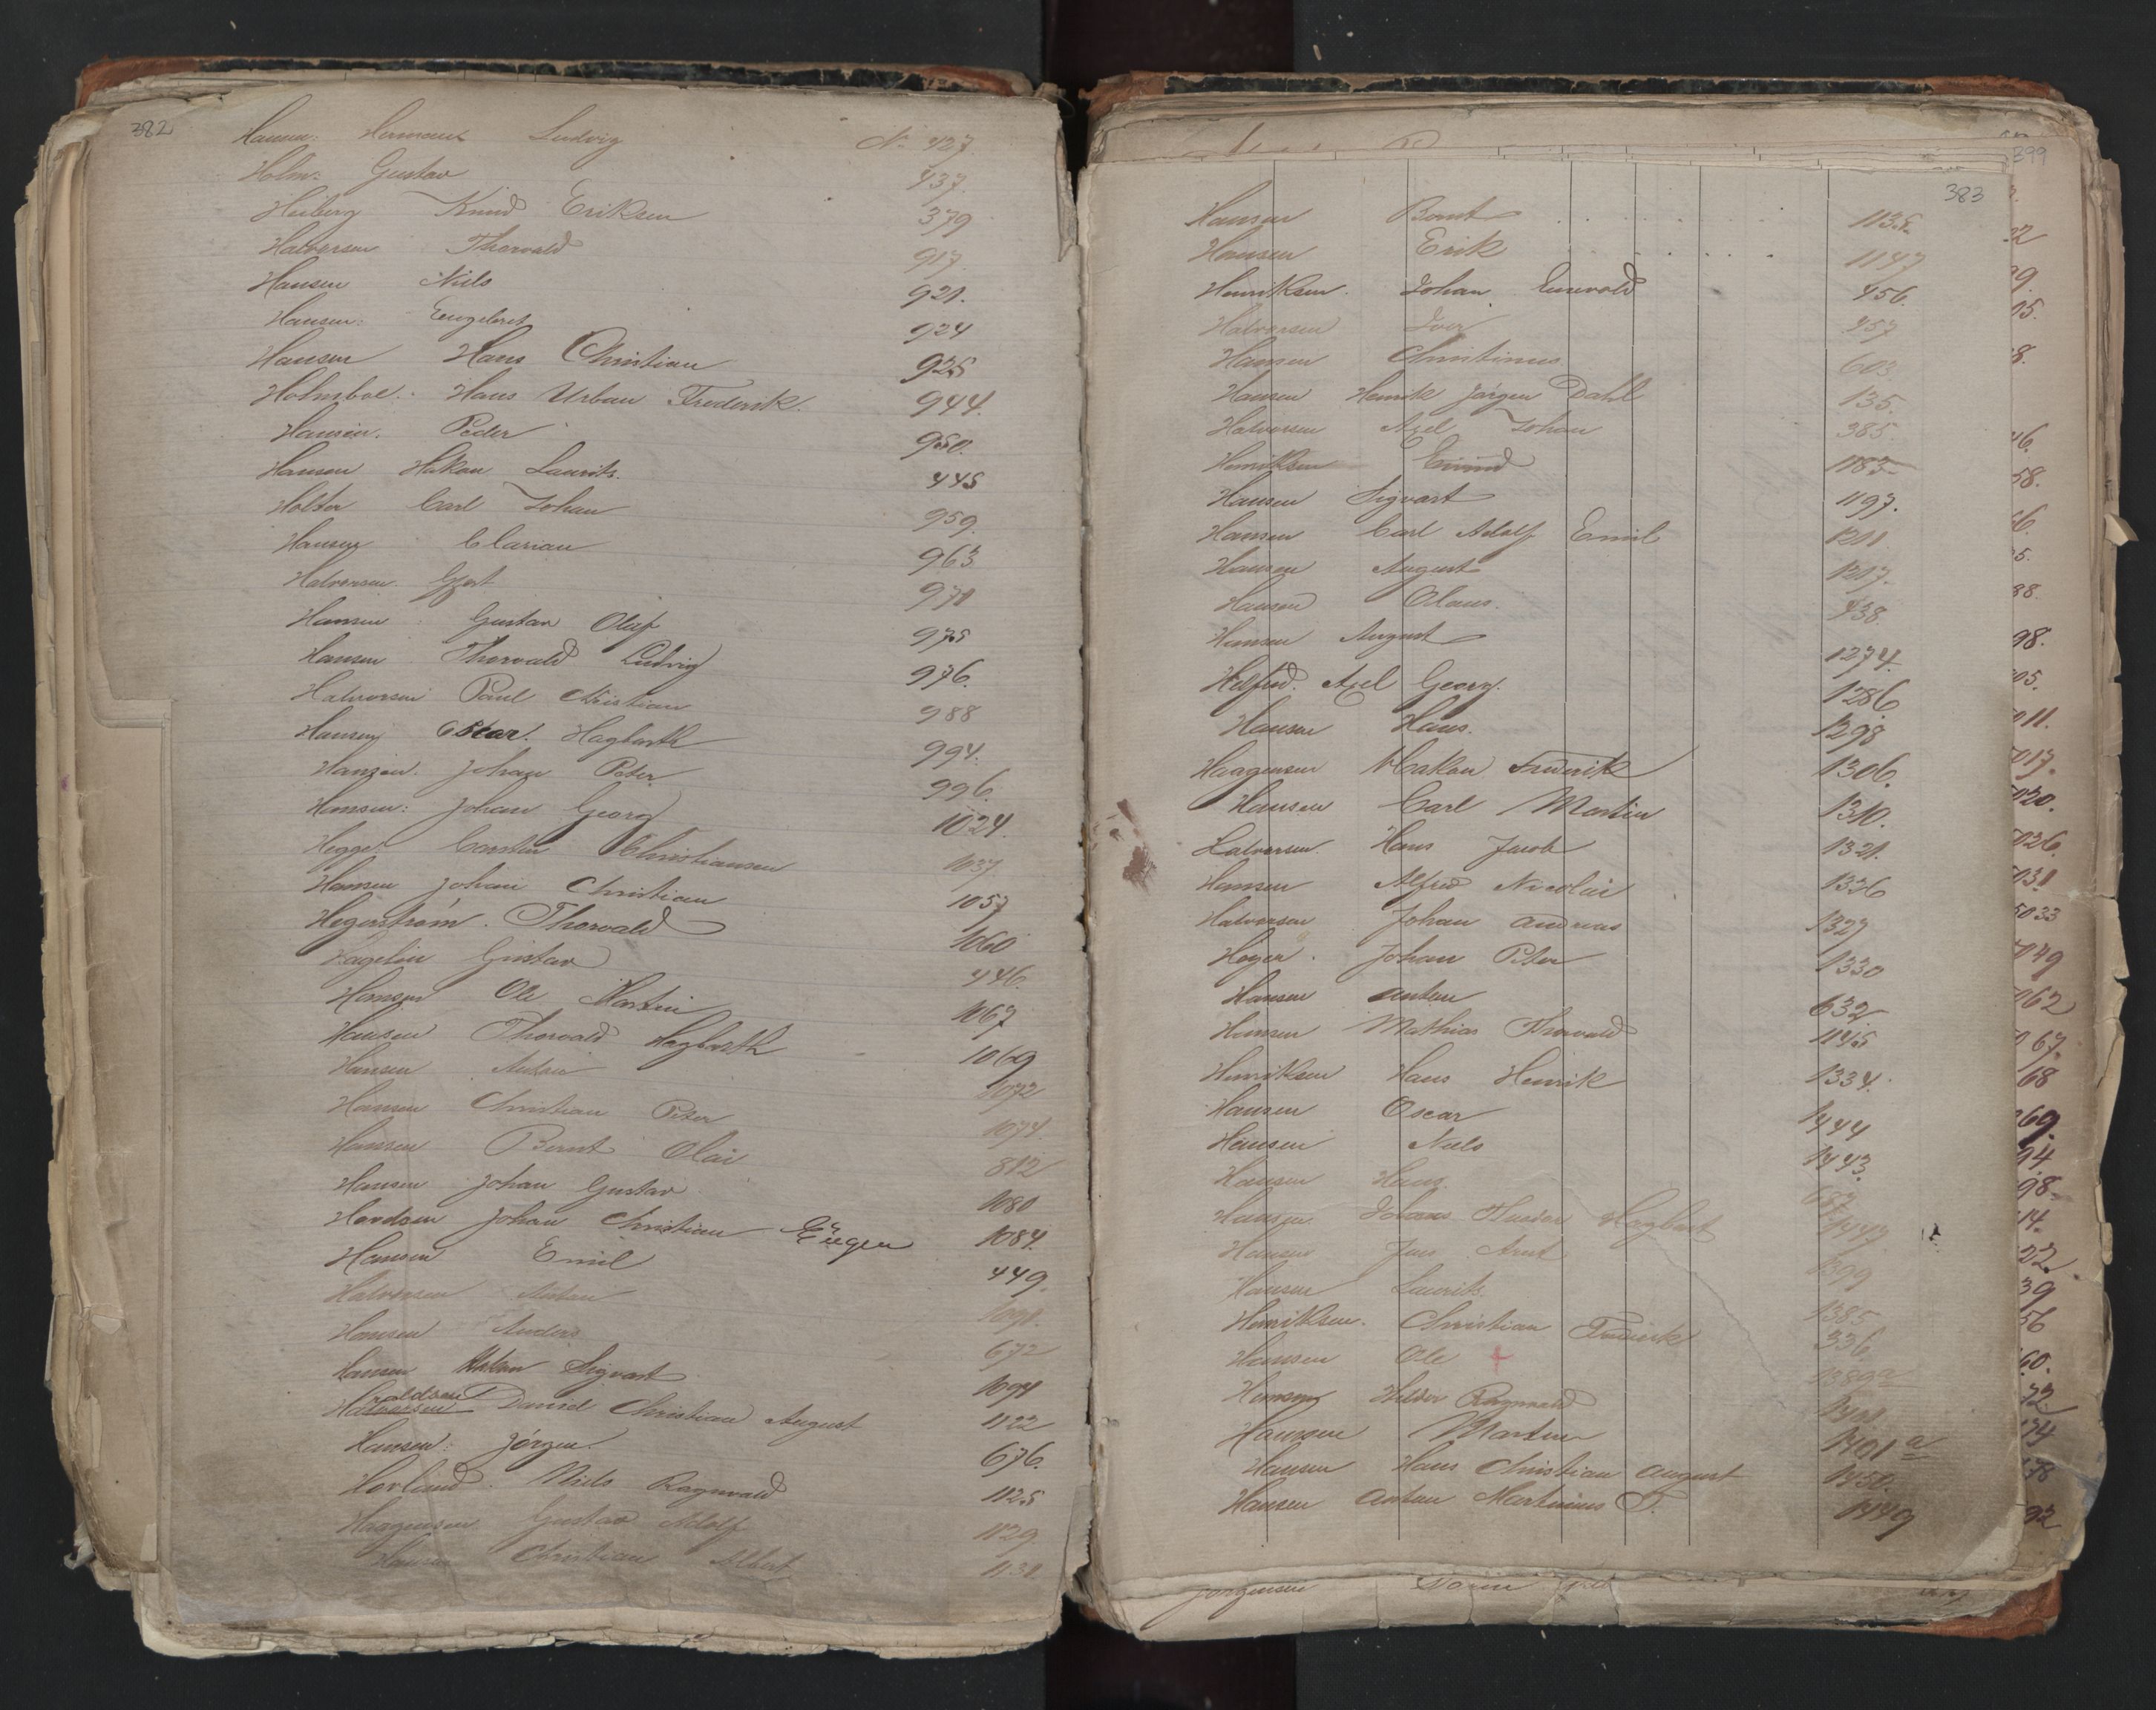 382
Hansen: Hermann Ludvig No 427.
Holm: Gustav 437.
Heiberg Knud Eriksen 379
Halvorsen Thorvald 917.
Hansen Niels 921.
Hansen: Engebret 924
Hansen Hans Christian 925
Holmboe: Hans Urban Frederik. 944.
Hansen. Peder 950.
Hansen Hakon Laurits. 445
Holter Carl Johan 959.
Hansen Clarian 963
Halvorsen. Gjert 971
Hansen: Gustav Olaf 975
Hansen Thorvald Ludvig 976.
Halvorsen Paul Christian 988
Hansen Oscar. Hagbarth 994.
Hansen. Johan Peter 996.
Hansen: Johan Georg 1024.
Hegge: Carsten Christiansen 1037.
Hansen Johan Christian 1057
Hegerstrøm. Thorvald 1060
Hagelin Gustav 446.
Hansen Ole Martin 1067
Hansen Thorvald Hagbarth 1069
Hansen Anton 1072
Hansen Christian Peter 1074.
Hansen Bernt Olai 812
Hansen Johan Gustav 1080
Havdsen Johan Christian Eügen 1084.
Hansen Emil 449.
Halvorsen Anton 1091.
Hansen Anders 672
Hansen Hakon Sigvart 1094
Haldsen Daniel Christian August 1122
Hansen: Jörgen. 676.
Hovland. Niels Ragnvald 1125
Haagensen Gustav Adolf 1129
Hansen Christian Albert 1131
383
Hansen Bernt 1135.
Hansen Erik 1147
Henriksen. Johan Enevold 456.
Halvorsen Iver 457
Hansen Christinus 603.
Hansen Henrik Jörgen Dahl 135.
Halvorsen Axel Johan 385.
Henriksen Eivind 1183
Hansen Sigvart 1197.
Hansen Carl Adolf Emil 1211
Hansen August 1217.
Hansen Olaus. 438
Hansen August 1274.
Helfred. Axel Georg. 1286
Hansen Hans. 1298
Haagensen Hakon Frederik 1306.
Hansen Carl Martin 1310.
Halvorsen Hans Jacob 1321.
Hansen Alfred Nicolai 1336
Halvorsen Johan Andreas 1327
Høyer. Johan Peter 1330
Hansen Anton 632
Hansen Mathias Thorvald 1145
Henriksen Hans Henrik 1334.
Hansen Oscar 1444
Hansen Niels 1443.
Hansen Hans. 687
Hansen Johans Theodor Hagbart 1447
Hansen Jens Arnt 1399
Hansen Laurits. 1385
Henriksen. Christian Frederik 336.
Hansen Ole + 1389a
Hansen Hilder Ragnvald 1401
Hansen Martin 1401 a
Hansen Hans Christian August 1450.
Hansen Anton Martinius T. 1449
399
Jørgensen